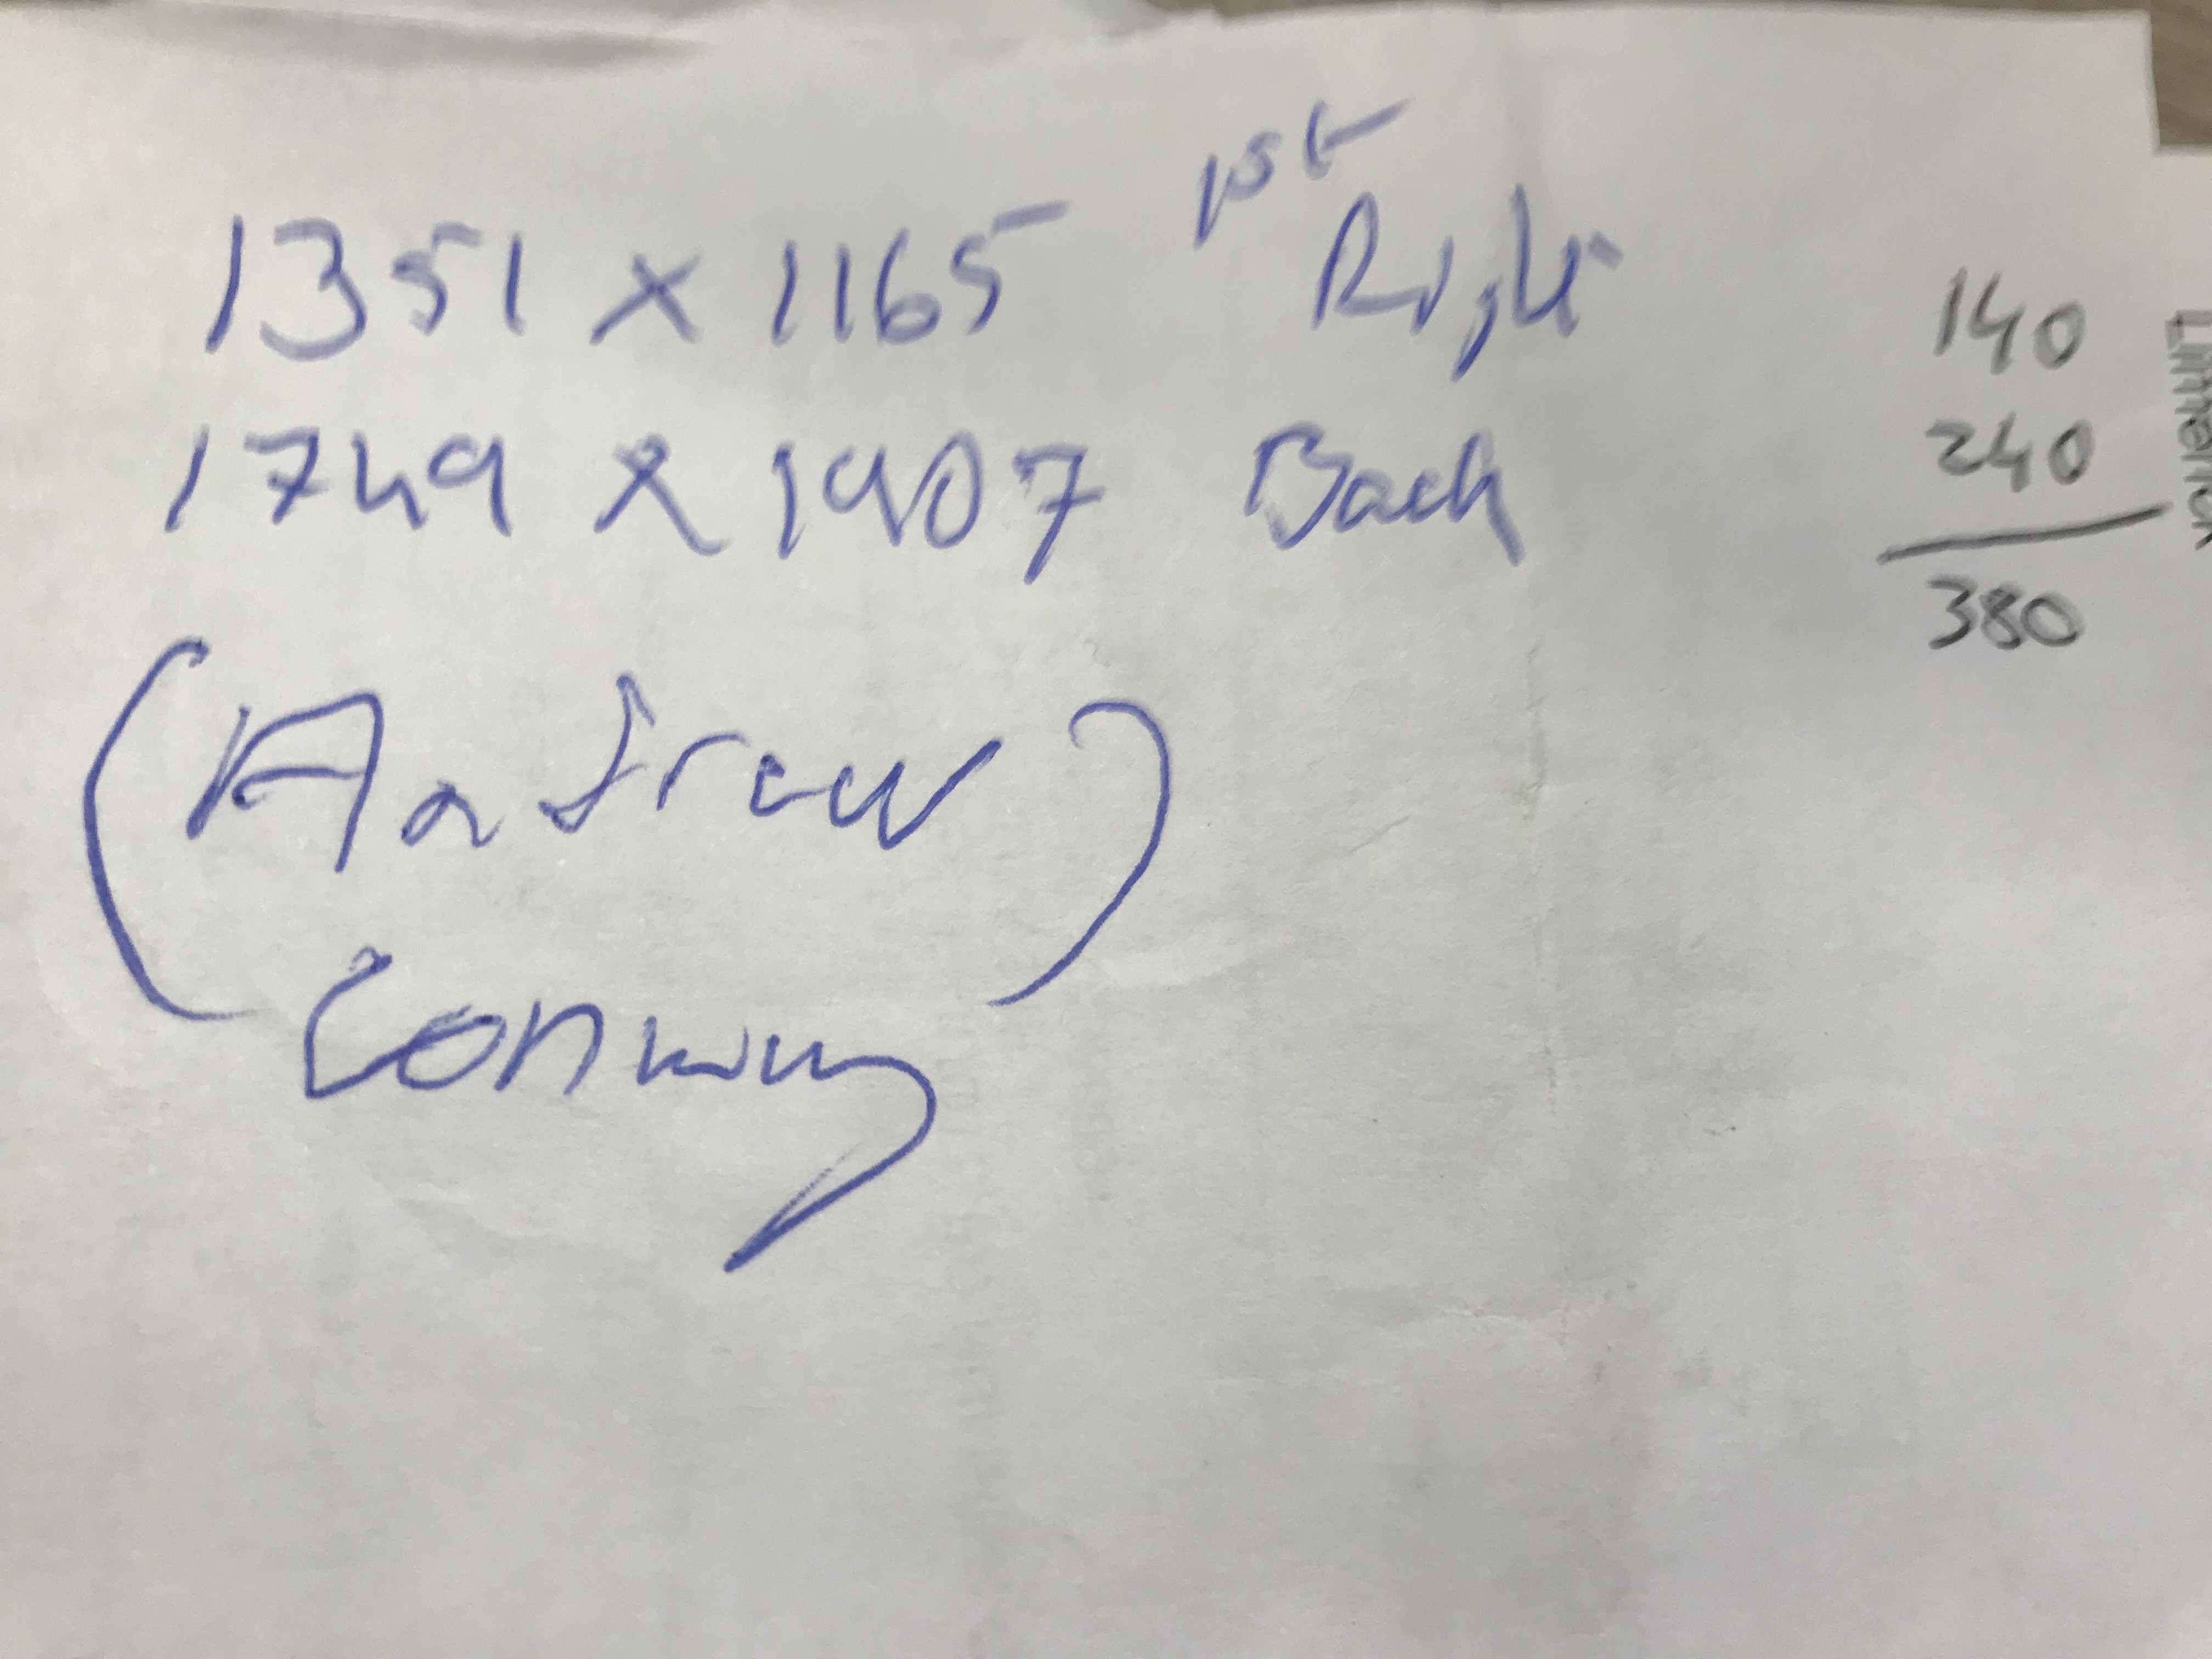 1351 x 1165 1st Right
1749 x 1907 Back
(Andrew)
Conway
140
240
380